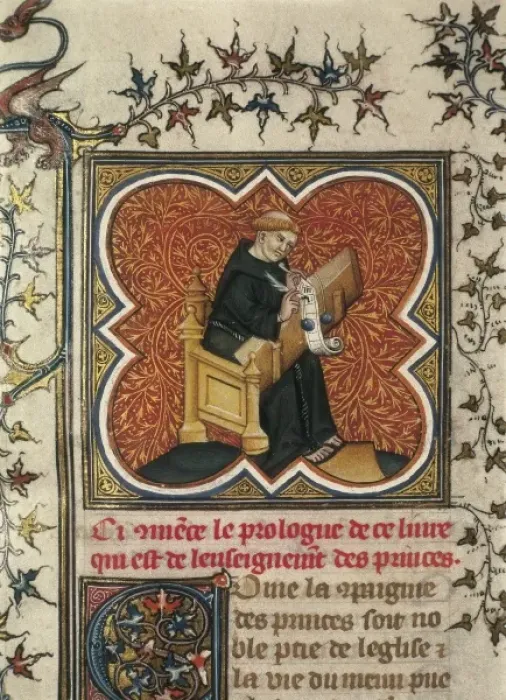 Ci ꝯmēce le prologue de ce liure
qui est de lenseignem̄t des princes.
COme la ꝯpaignie
des princes soit no
ble ꝑtie de leglise ⁊
la vie du menu pue